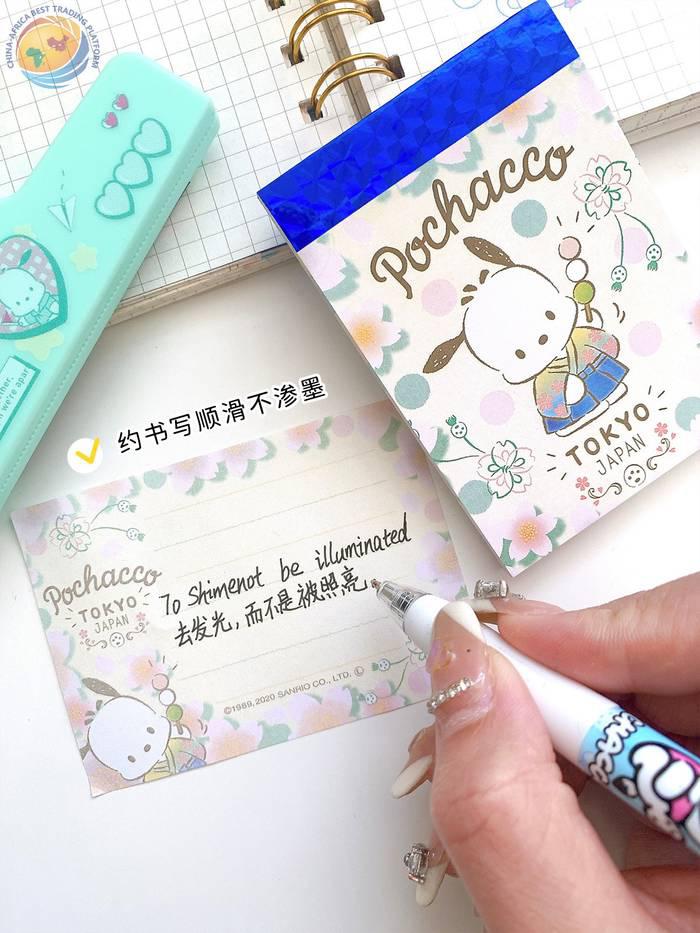 CHINA-AFRICA BEST TRADING PLATFORM
Pochacco
TOKYO
JAPAN
约书写顺滑不渗墨
Pochacco
TOKYO
JAPAN
To Shimenot be illuminated
去发光,而不是被照亮。
©1989, 2020 SANRIO CO., LTD. Ⓛ
POCHACCO